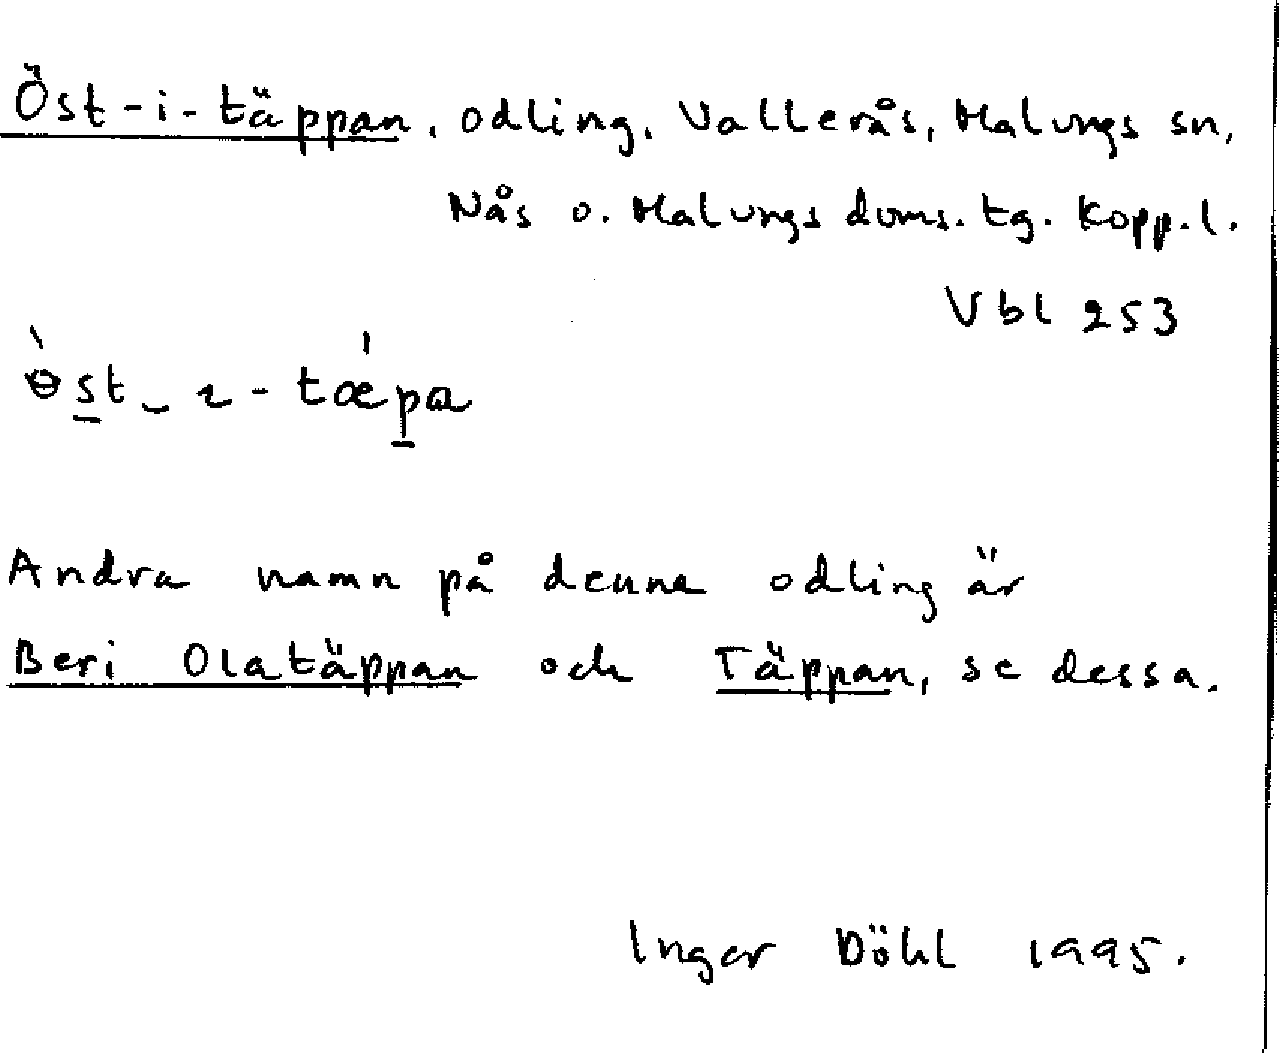 Öst-i-täppan, odling, Vallerås, Malungs sn,
Nås o. Malungs doms. tg. Kopp.l.
Vbl 253
ɵ̀st_ ɩ - tǽpa
Andra namn på denna odling är
Beri Olatäppan och Täppan, se dessa.
Inger Döhl 1995.